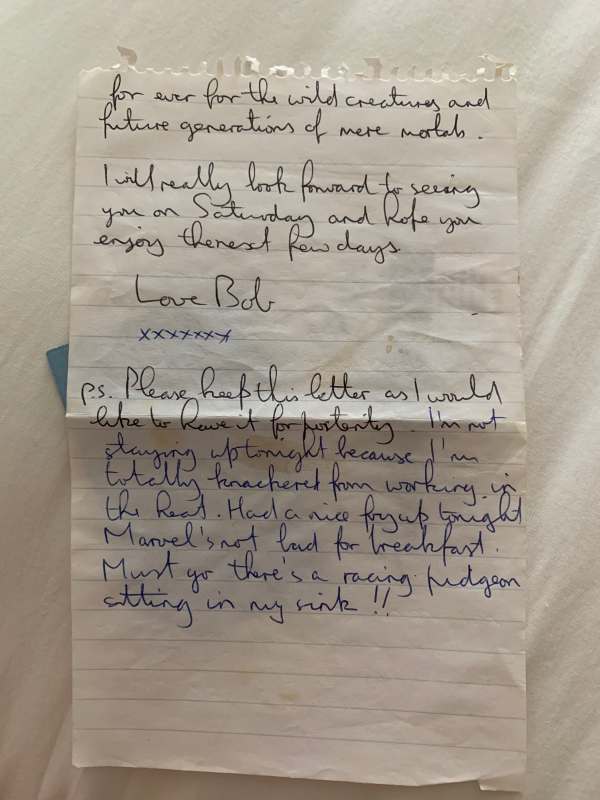 for ever for the wild creatures and
future generations of mere mortals.
I will really look forward to seeing
you on Saturday and hope you
enjoy the next few days
Love Bob
xxxxxxx
p.s. Please keep this letter as I would
like to have it for posterity. I'm not
staying up tonight because I'm
totally knackered from working in
the heat. Had a nice fry up tonight
Marvel's not bad for breakfast.
Must go there's a racing pidgeon
sitting in my sink !!